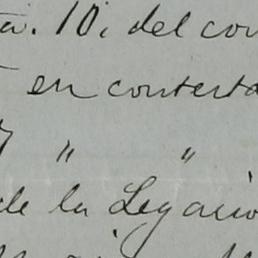 10, del con
en contesta
" "
de la Legacio